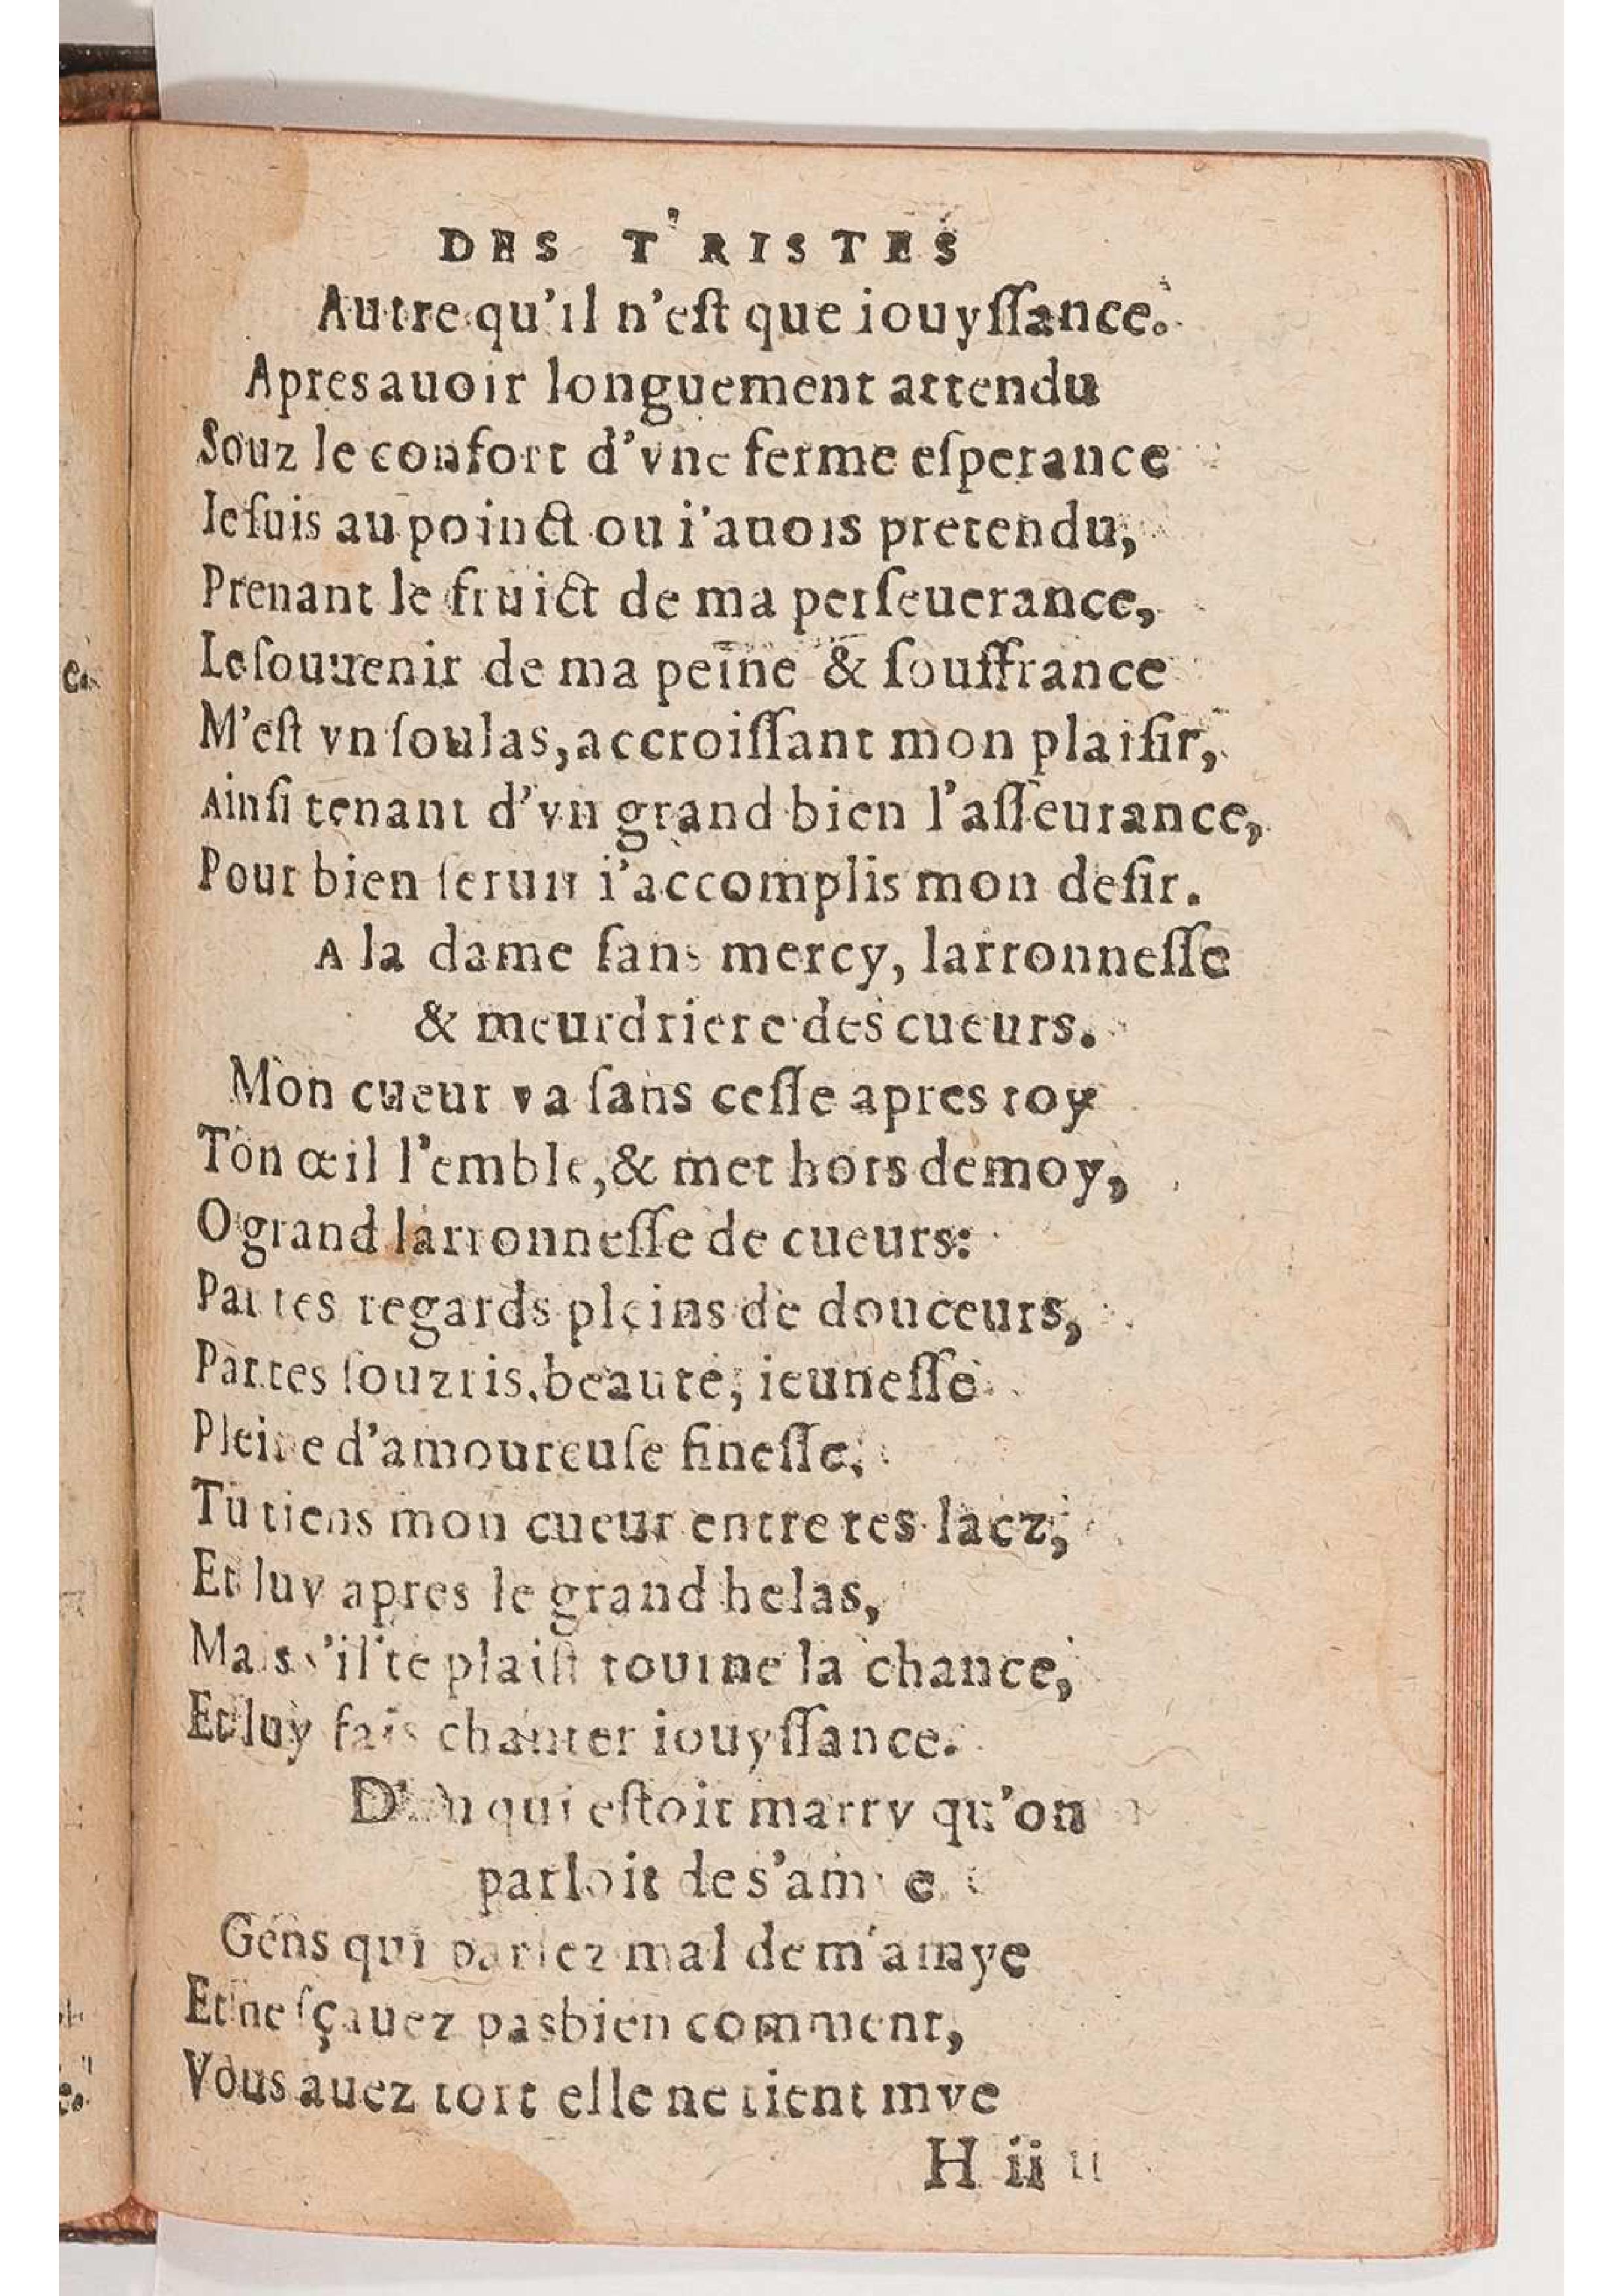 DES TRISTES
Autre qu'il n'eſt que iouyſſance.
Apres auoir longuement attendu
Souz le confort d'vne ferme eſperance
Ie ſuis au poinct ou i'auois pretendu,
Prenant le fruict de ma perſeuerance,
Le ſouuenir de ma peine & ſouffrance
M'eſt vn ſoulas, accroiſſant mon plaiſir,
Ainſi tenant d'vn grand bien l'aſſeurance,
Pour bien ſeruir i'accomplis mon deſir.
A la dame ſans mercy, larronneſſe
& meurdriere des cueurs.
Mon cueur va ſans ceſſe apres toy
Ton œil l'emble, & met hors de moy,
O grand larronneſſe de cueurs:
Par tes regards pleins de douceurs,
Par tes ſouzris, beauté, ieuneſſe
Pleine d'amoureuſe fineſſe,
Tu tiens mon cueur entre tes lacz,
Et luy apres le grand helas,
Mais s'il te plaiſt tourne la chance,
Et luy fais chanter iouyſſance.
D'un qui eſtoit marry qu'on
parloit de s'amie
Gens qui parlez mal de m'amye
Et ne ſçauez pas bien comment,
Vous auez tort elle ne tient mye
H ii